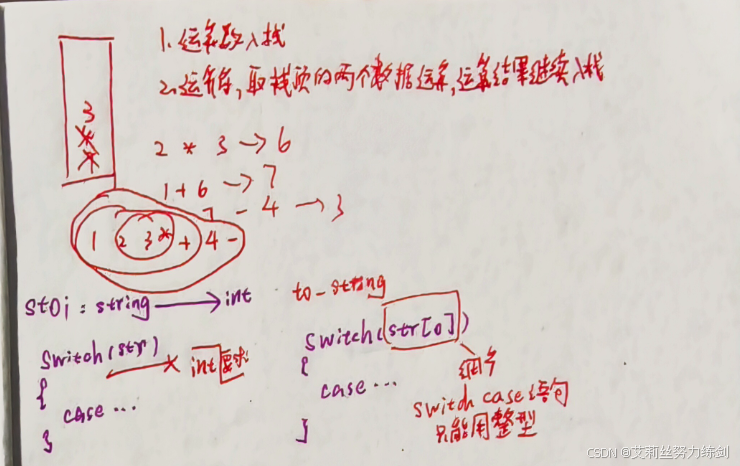 1. 运算数入栈
2. 运算符,取栈顶的两个数据运算,运算结果继续入栈
3
2 * 3 → 6
1 + 6 → 7
7 - 4 → 3
1 2 3 * + 4 -
stoi : string → int
to_string
switch(str)
int要求
{
case ...
}
switch(str[0])
{
case ...
}
细节
switch case 语句
只能用整型
CSDN @艾莉丝努力练剑